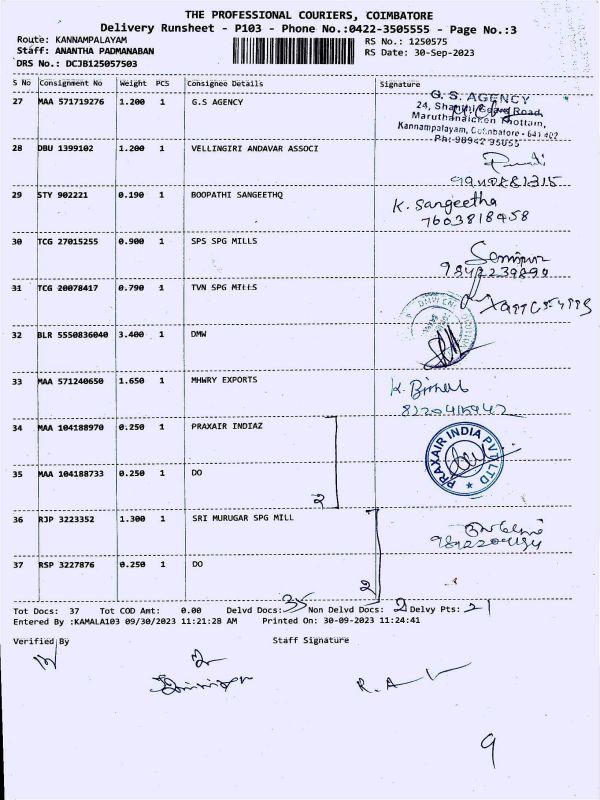 THE PROFESSIONAL COURIERS, COIMBATORE
Delivery Runsheet - P103 - Phone No.:0422-3505555 - Page No.:3
Route: KANNAMPALAYAM RS No.: 1250575
Staff: ANANTHA PADMANABAN RS Date: 30-Sep-2023
DRS No.: DCJB125057503
S No Consignment No Weight PCS Consignee Details Signature
27 MAA 571719276 1.200 1 G.S AGENCY
G. S. AGENCY
Maruthanaicken Thottam,
Kannampalayam, Coimbatore - 641 402
28 DBU 1399102 1.200 1 VELLINGIRI ANDAVAR ASSOCI
29 STY 902221 0.190 1 BOOPATHI SANGEETHQ
K. Sangeetha
7603818458
30 TCG 27015255 0.900 1 SPS SPG MILLS
31 TCG 20078417 0.790 1 TVN SPG MILLS
32 BLR 5550836040 3.400 1 DMW
33 MAA 571240650 1.650 1 MHWRY EXPORTS
34 MAA 104188970 0.250 1 PRAXAIR INDIAZ
PRAXAIR INDIA PVT LTD
35 MAA 104188733 0.250 1 DO
2
36 RJP 3223352 1.300 1 SRI MURUGAR SPG MILL
37 RSP 3227876 0.250 1 DO
2
Tot Docs: 37 Tot COD Amt: 0.00 Delvd Docs: 35 Non Delvd Docs: 2 Delvy Pts: 21
Entered By :KAMALA103 09/30/2023 11:21:28 AM Printed On: 30-09-2023 11:24:41
Verified By Staff Signature
R.A
9